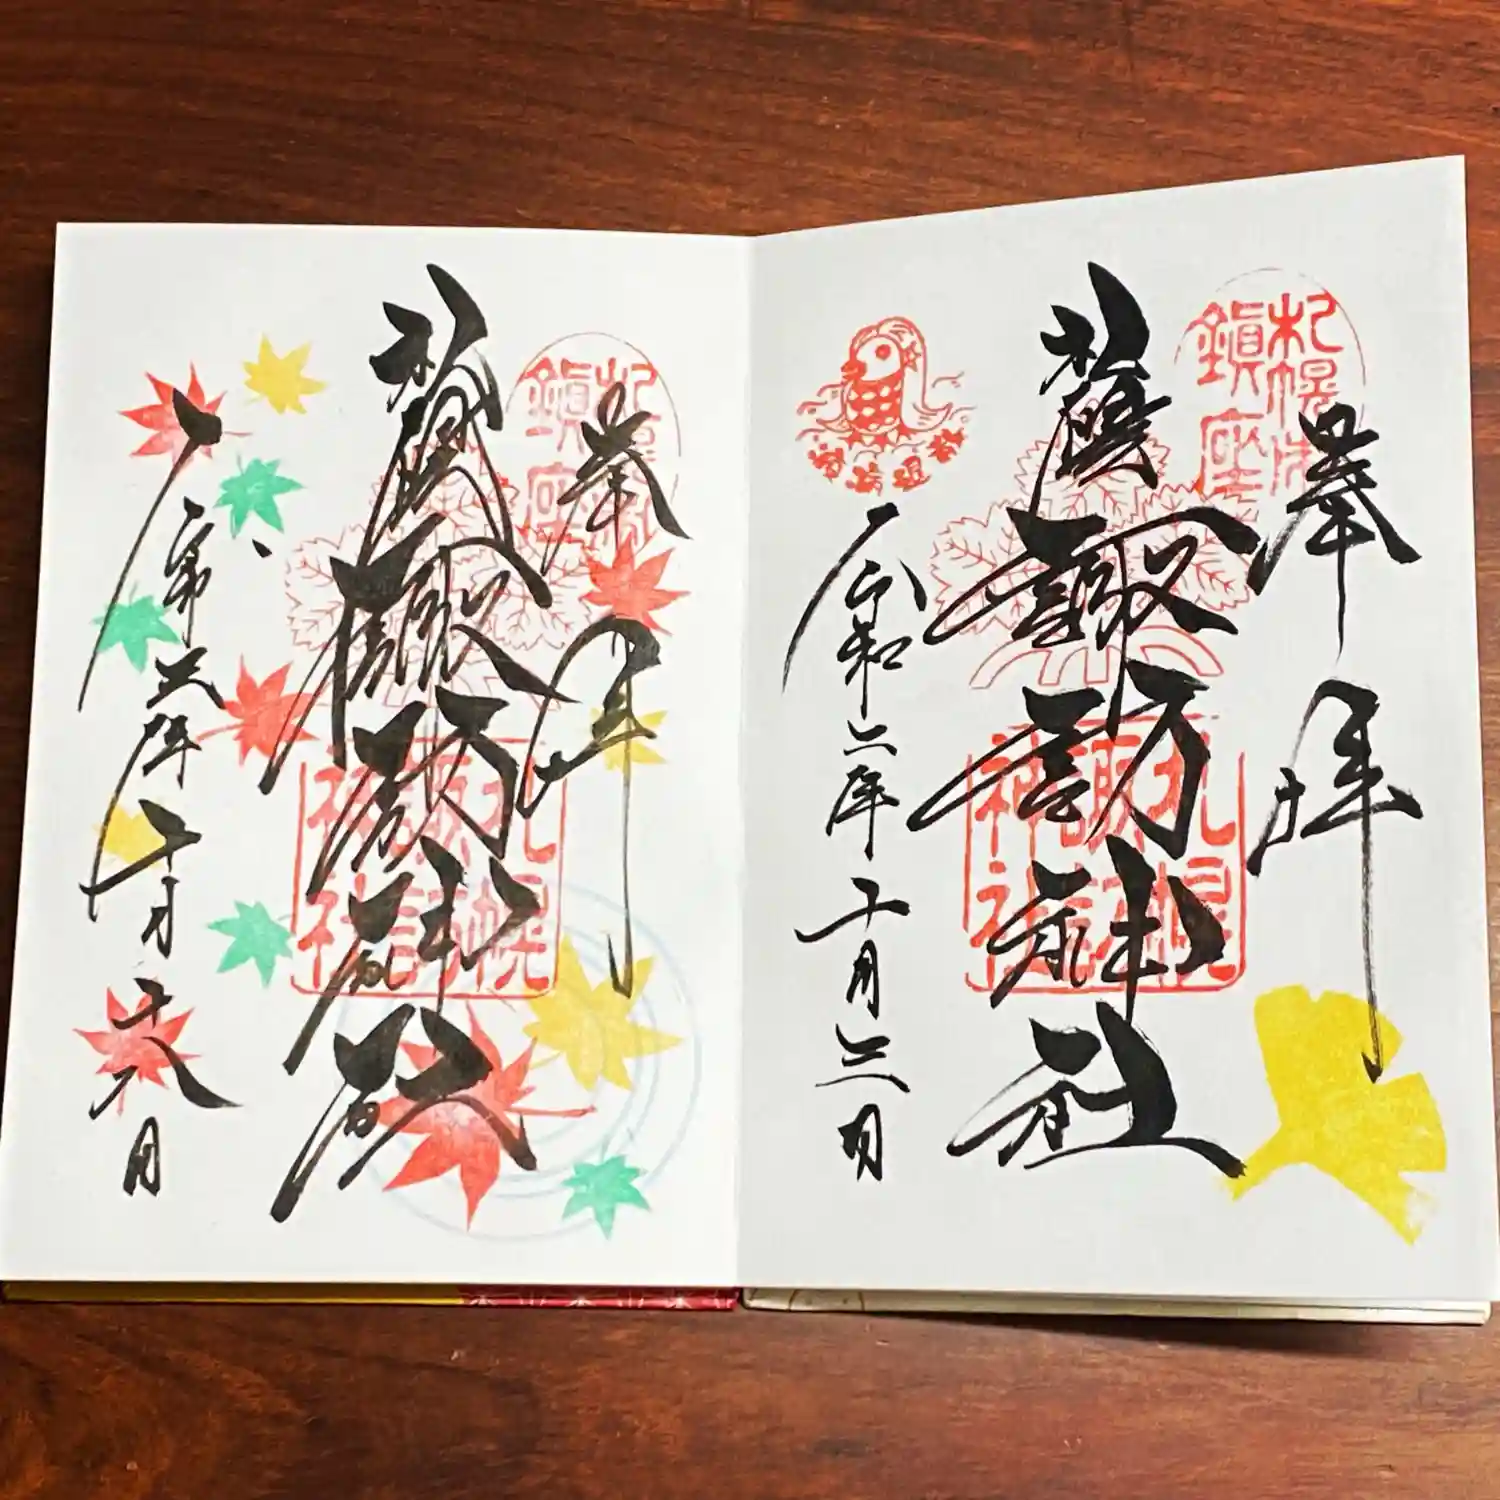 奉拝
札幌鎮座
札幌諏訪神社
札幌
諏訪
神社
疫病退散
令和二年十月三日
奉拝
札幌鎮座
札幌諏訪神社
札幌
諏訪
神社
令和三年十月十八日